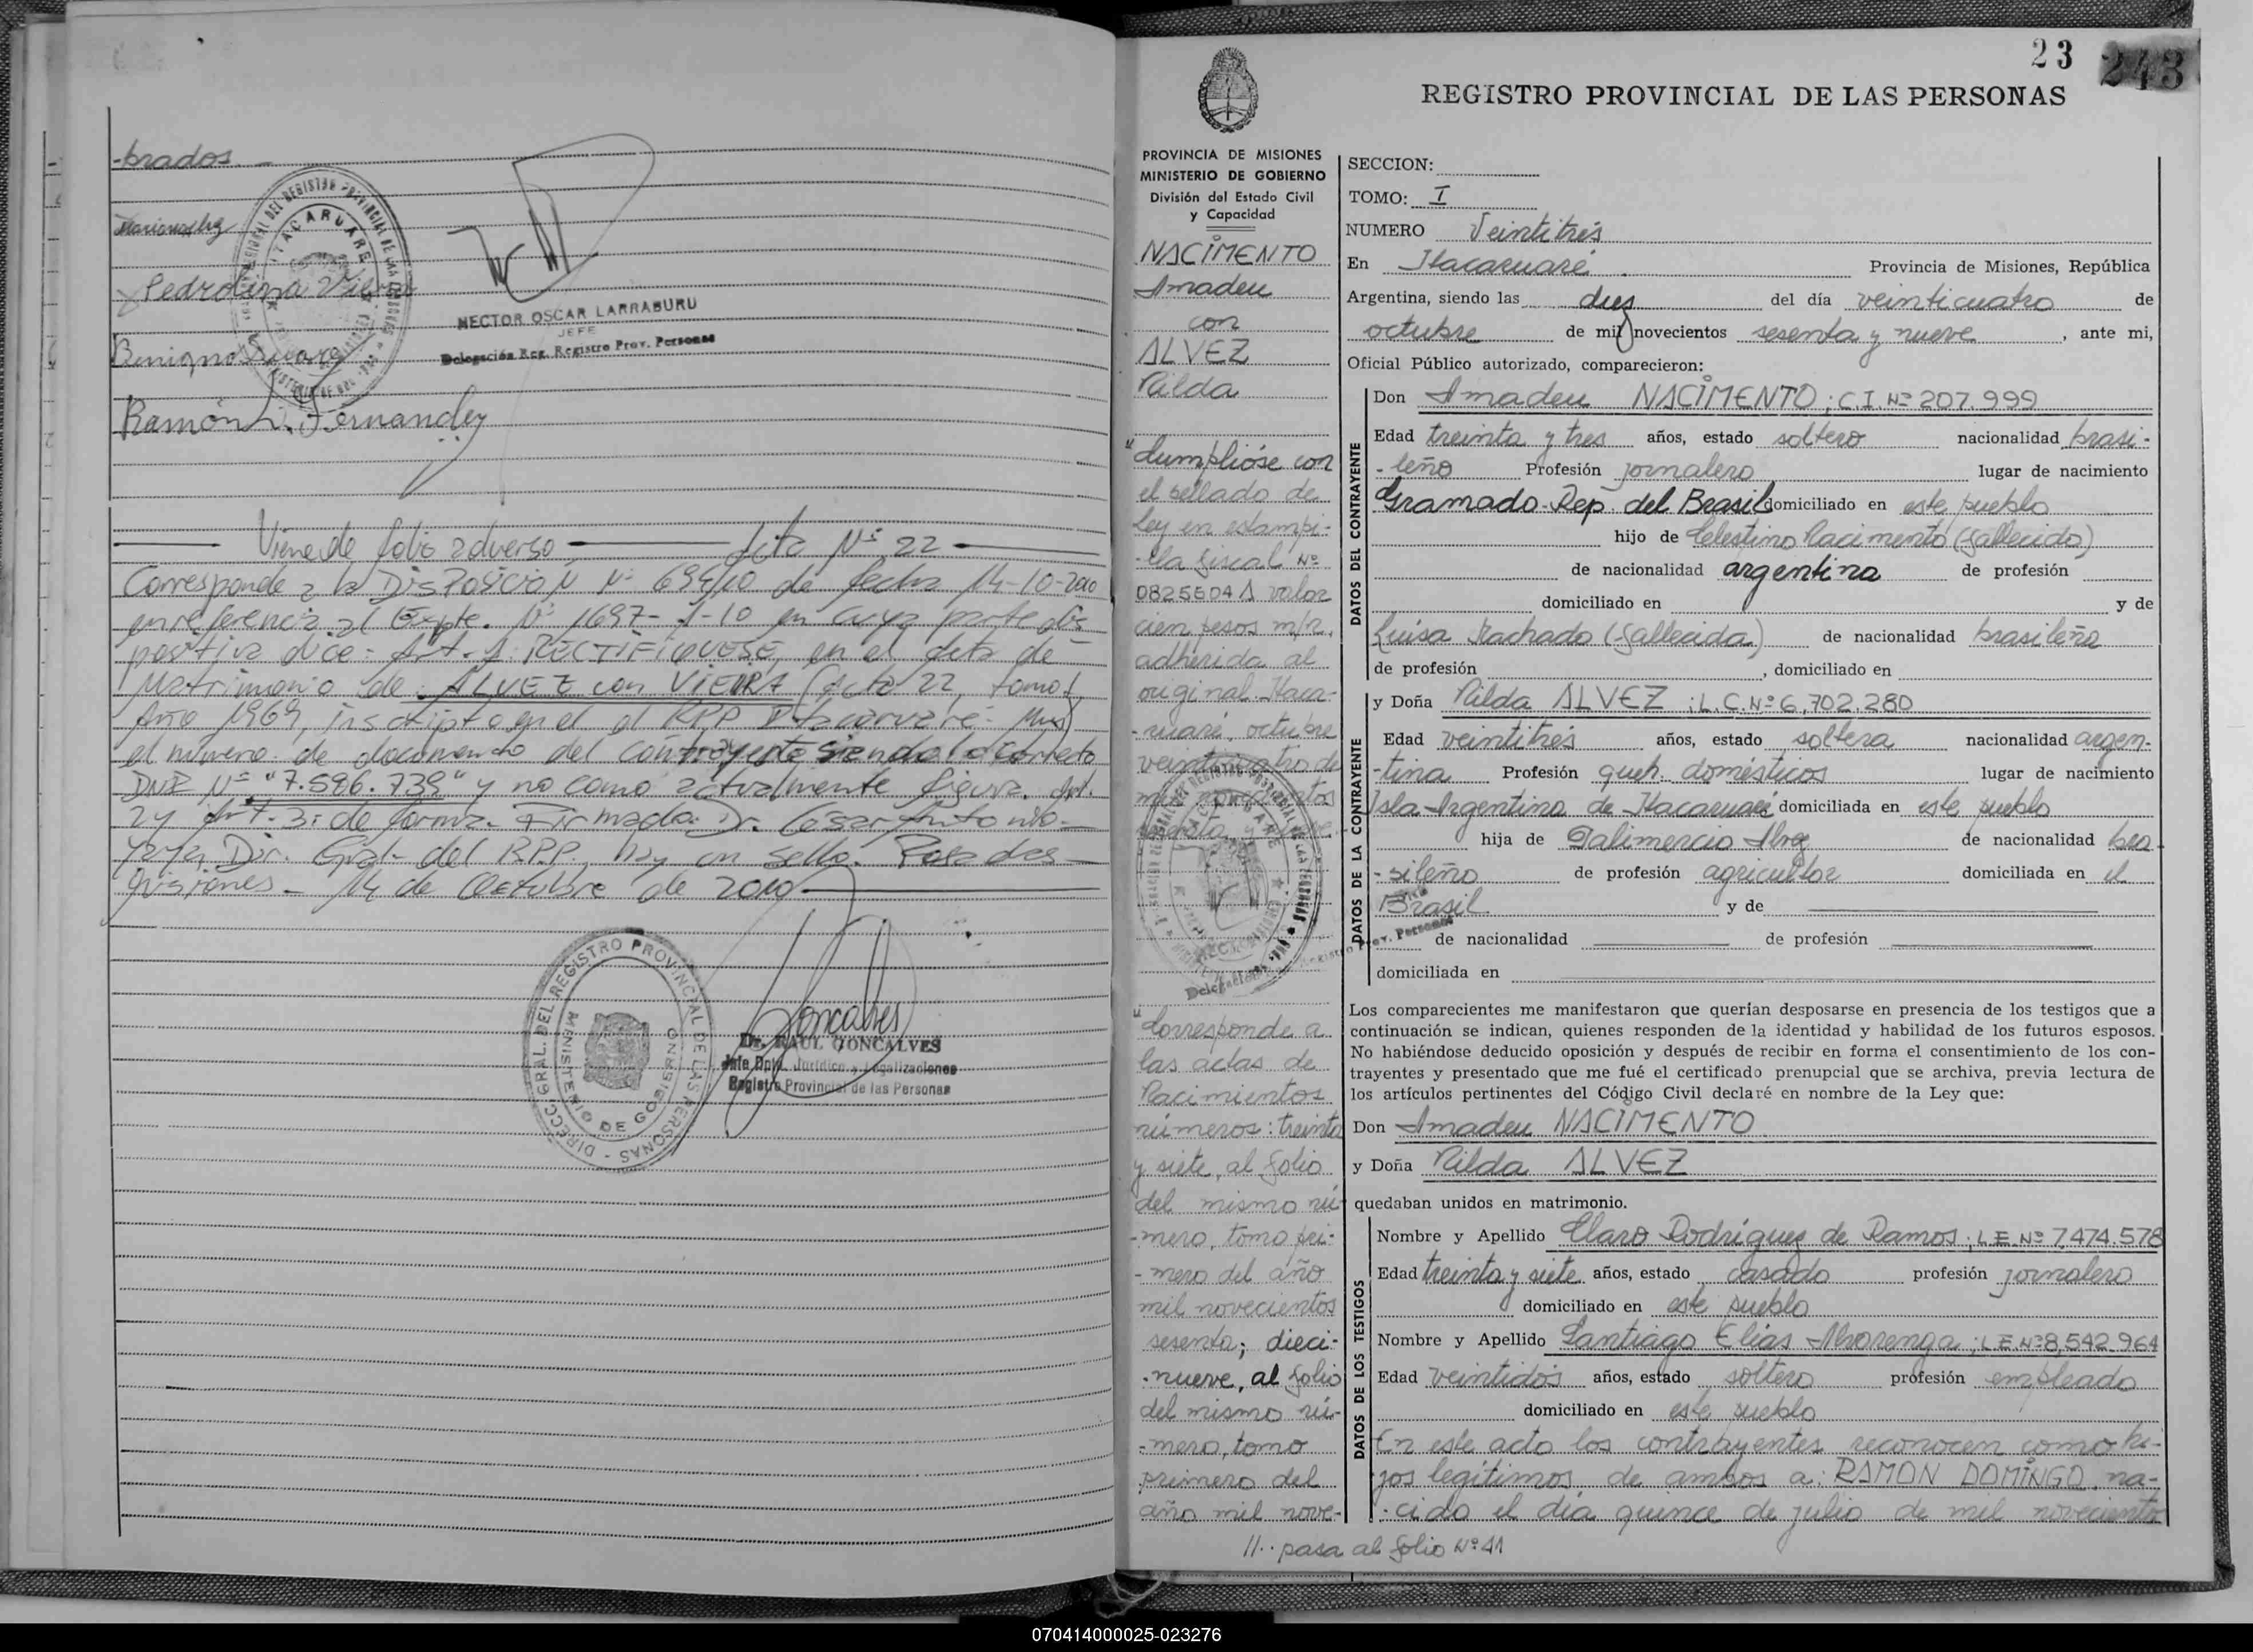 -brados.
Pedrolina Vieira
HECTOR OSCAR LARRABURU
JEFE
Delegación Reg. Registro Prov. Personas
Ramón L. Fernandez
Viene de folio adverso Acta Nº 22
Corresponde a la DISPOSICIÓN Nº 694/10 de fecha 14-10-2010
en referencia al Expte. Nº 1697- -10 en cuya parte dis
positiva dice: Art. 1: RECTIFIQUESE, en el Acta de
Matrimonio de ALVEZ con VIEIRA (Acta 22, tomo I,
Año 1969, inscripto en el RPP Itacaruaré- Mnes)
el número de documento del contrayente siendo lo correcto
DNI Nº "7.596.739" y no como actualmente figura. Art.
2 y Art. 3: de forma. Firmado: Dr. Cesar Antonio
Dir. Gral. del RPP, hay un sello. Posadas
Misiones - 14 de Octubre de 2010
DIRECC. GRAL. DEL REGISTRO PROVINCIAL DE LAS PERSONAS
MINISTERIO DE GOBIERNO
Dr. RAUL GONCALVES
Jefe Dpto. Jurídico y Legalizaciones
Registro Provincial de las Personas
23 243
REGISTRO PROVINCIAL DE LAS PERSONAS
PROVINCIA DE MISIONES
MINISTERIO DE GOBIERNO
División del Estado Civil
y Capacidad
NACIMENTO
Amadeu
con
ALVEZ
Nilda
"Cumplióse con
el sellado de
ley en estampi-
-lla fiscal Nº
0825604 A valor
cien pesos m/n,
adherida al
original. Itaca-
-ruaré, octubre
veinticuatro de
mil novecientos
sesenta y nueve.
"Corresponde a
las actas de
Nacimientos
números: treinta
y siete, al folio
del mismo nú-
-mero, tomo pri-
-mero del año
mil novecientos
sesenta; dieci-
-nueve, al folio
del mismo nú-
-mero, tomo
primero del
año mil nove-
SECCION:
TOMO: I
NUMERO Veintitrés
En Itacaruaré. Provincia de Misiones, República
Argentina, siendo las diez del día veinticuatro de
octubre de mil novecientos sesenta y nueve, ante mi,
Oficial Público autorizado, comparecieron:
DATOS DEL CONTRAYENTE
Don Amadeu NACIMENTO; C.I. Nº 207.999
Edad treinta y tres años, estado soltero nacionalidad brasi-
-leño Profesión jornalero lugar de nacimiento
Gramado-Rep. del Brasil domiciliado en este pueblo
hijo de Celestino Nacimento (fallecido)
de nacionalidad argentina de profesión
domiciliado en y de
Luisa Machado (fallecida) de nacionalidad brasileña
de profesión , domiciliado en
DATOS DE LA CONTRAYENTE
y Doña Nilda ALVEZ; L.C. Nº 6,702.280
Edad veintitrés años, estado soltera nacionalidad argen-
-tina Profesión queh. domésticos lugar de nacimiento
Isla-Argentina de Itacaruaré domiciliada en este pueblo
hija de Dalimercio Alvez de nacionalidad bra-
-sileño de profesión agricultor domiciliada en el
Brasil y de
de nacionalidad de profesión
domiciliada en
Los comparecientes me manifestaron que querían desposarse en presencia de los testigos que a
continuación se indican, quienes responden de la identidad y habilidad de los futuros esposos.
No habiéndose deducido oposición y después de recibir en forma el consentimiento de los con-
trayentes y presentado que me fué el certificado prenupcial que se archiva, previa lectura de
los artículos pertinentes del Código Civil declaré en nombre de la Ley que:
Don Amadeu NACIMENTO
y Doña Nilda ALVEZ
quedaban unidos en matrimonio.
DATOS DE LOS TESTIGOS
Nombre y Apellido Claro Rodríguez de Ramos; L.E. Nº 7,474.578
Edad treinta y siete años, estado casado profesión jornalero
domiciliado en este pueblo
Nombre y Apellido Santiago Elias Alvorenga; L.E. Nº 8,542.964
Edad veintidós años, estado soltero profesión empleado
domiciliado en este pueblo
En este acto los contrayentes reconocen como hi-
jos legítimos de ambos a: RAMON DOMINGO, na-
-cido el día quince de julio de mil novecientos
//.. pasa al folio Nº 41
070414000025-023276